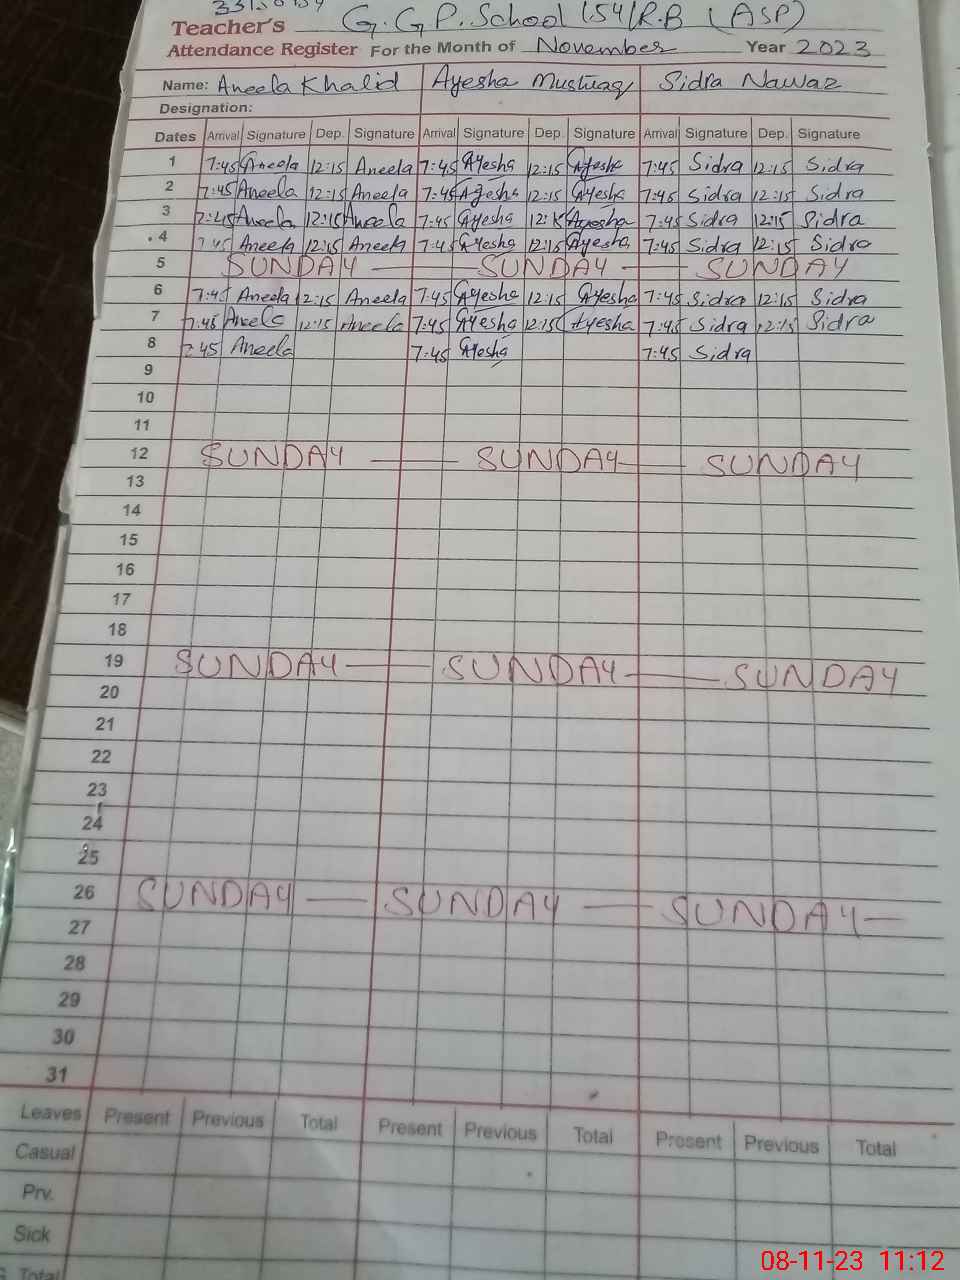 Teacher's G.G.P.School 154/R.B (ASP)
Attendance Register For the Month of November Year 2023
Name: Aneela Khalid Ayesha Mushtaq Sidra Nawaz
Designation:
Dates Arrival Signature Dep. Signature Arrival Signature Dep. Signature Arrival Signature Dep. Signature
1 7:45 Aneela 12:15 Aneela 7:45 Ayesha 12:15 Ayesha 7:45 Sidra 12:15 Sidra
2 7:45 Aneela 12:15 Aneela 7:45 Ayesha 12:15 Ayesha 7:45 Sidra 12:15 Sidra
3 7:45 Aneela 12:15 Aneela 7:45 Ayesha 12:15 Ayesha 7:45 Sidra 12:15 Sidra
4 7:45 Aneela 12:15 Aneela 7:45 Ayesha 12:15 Ayesha 7:45 Sidra 12:15 Sidra
5 SUNDAY — SUNDAY — SUNDAY
6 7:45 Aneela 12:15 Aneela 7:45 Ayesha 12:15 Ayesha 7:45 Sidra 12:15 Sidra
7 7:45 Aneela 12:15 Aneela 7:45 Ayesha 12:15 Ayesha 7:45 Sidra 12:15 Sidra
8 7:45 Aneela 7:45 Ayesha 7:45 Sidra
9
10
11
12 SUNDAY — SUNDAY — SUNDAY
13
14
15
16
17
18
19 SUNDAY — SUNDAY — SUNDAY
20
21
22
23
24
25
26 SUNDAY — SUNDAY — SUNDAY —
27
28
29
30
31
Leaves Present Previous Total Present Previous Total Present Previous Total
Casual
Prv.
Sick
Total
08-11-23 11:12